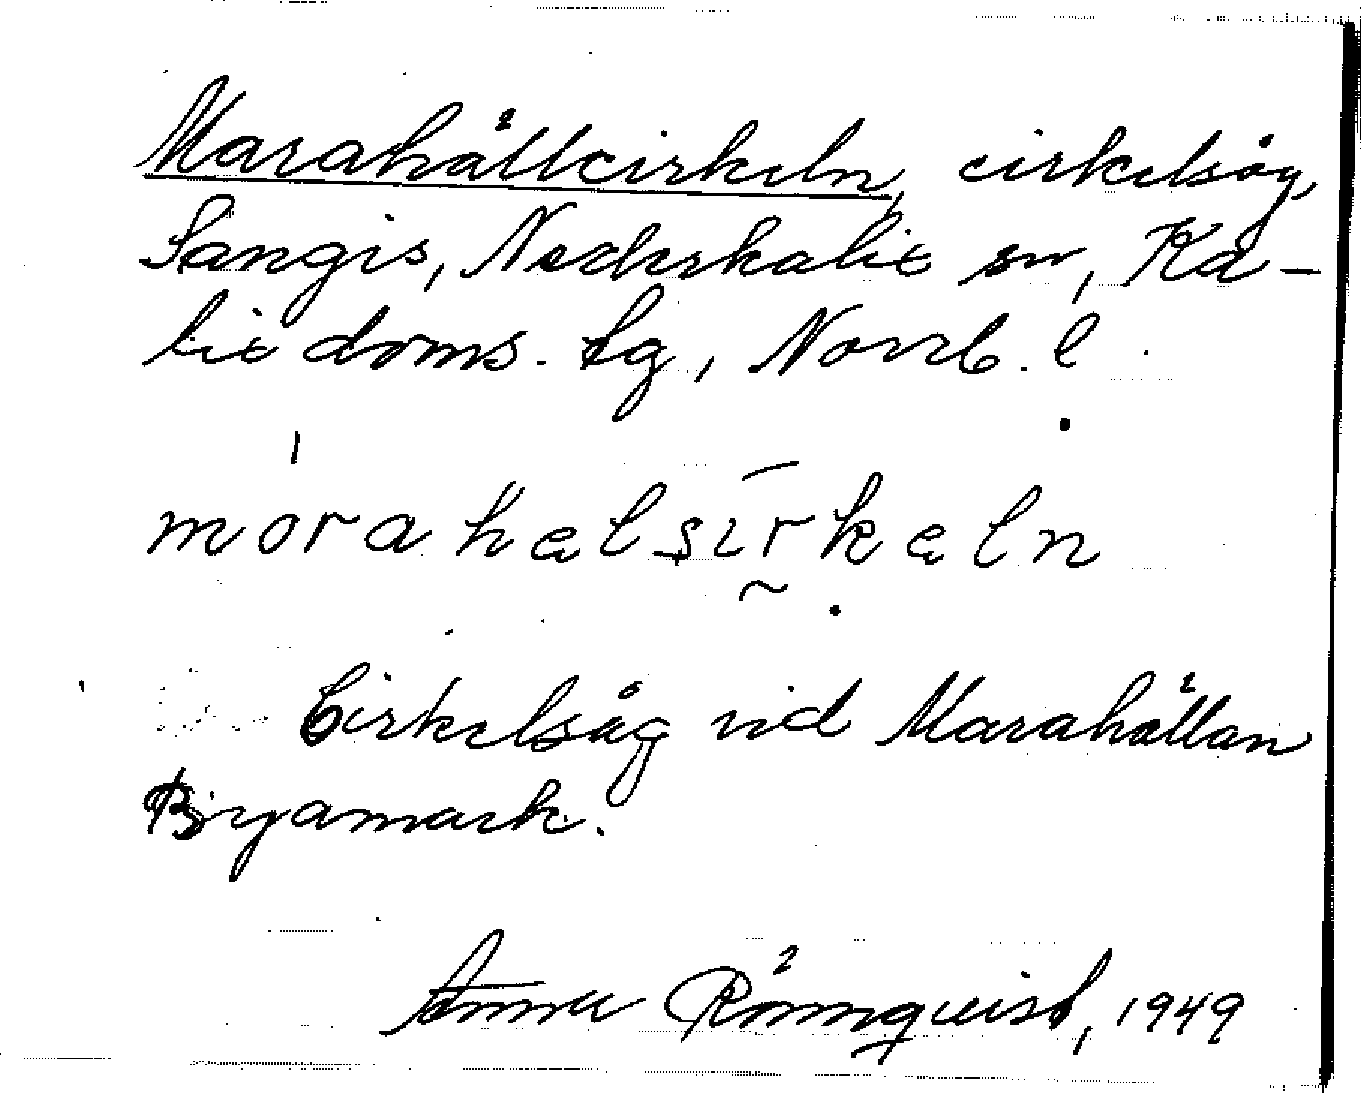 Marahällcirkeln, cirkelsåg,
Sangis, Nederkalix sn, Ka-
lix doms. tg, Norrb. l.
mȯrahælsīrkæln
Cirkelsåg vid Marahällan
Bryamark.
Anna Rönnqvist, 1949